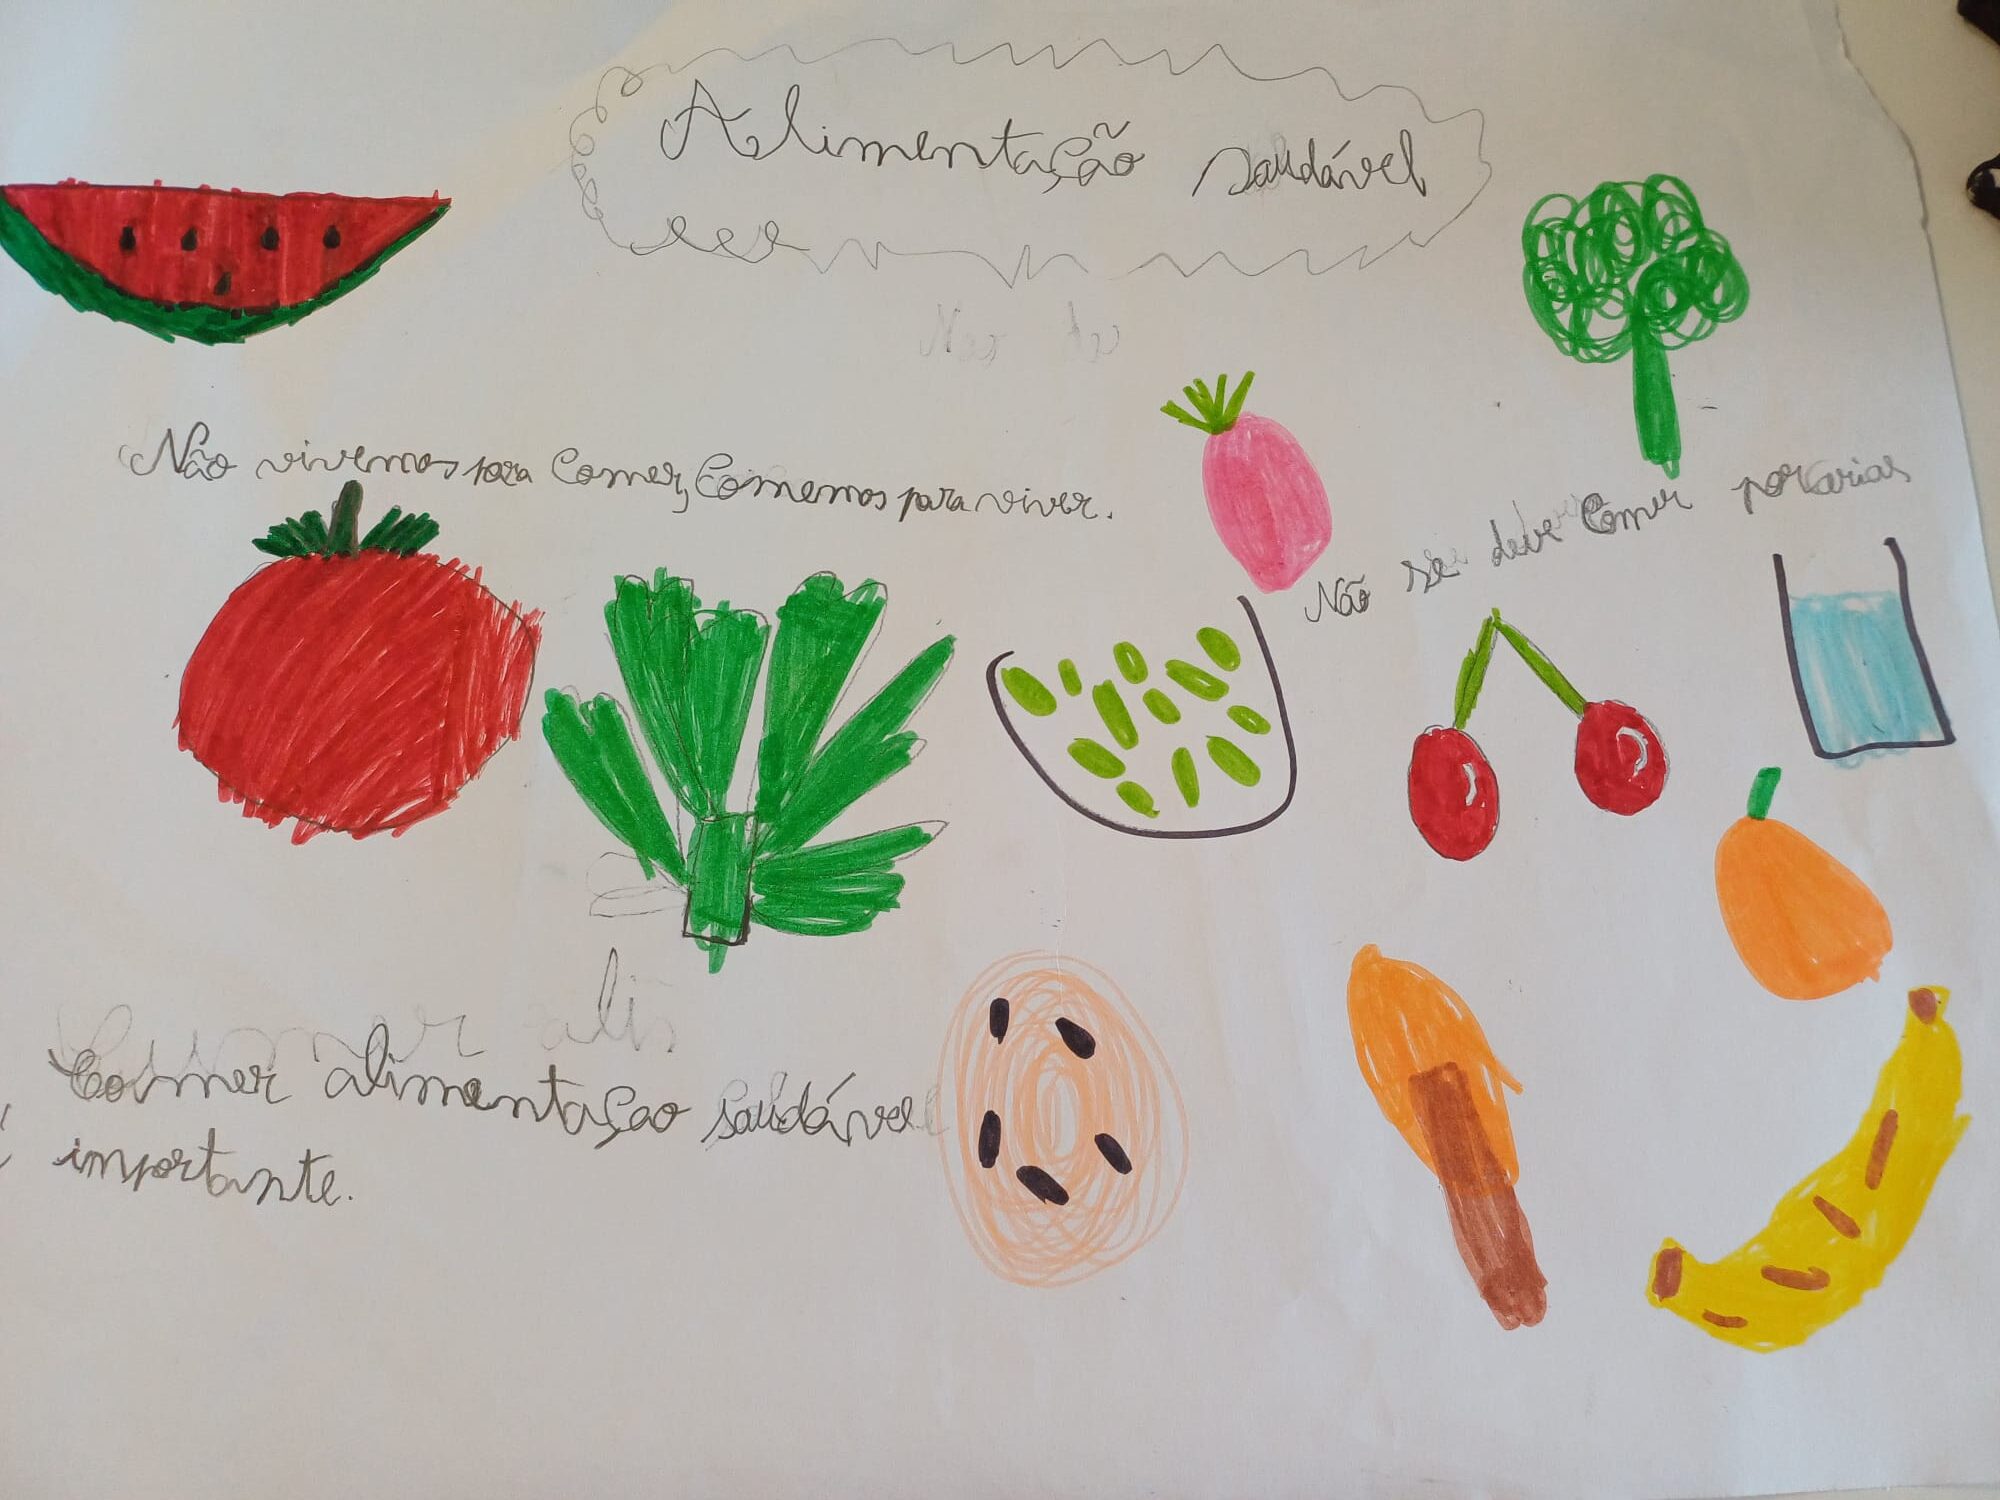 Alimentação saudável
Não vivemos para Comer, Comemos para viver.
Não se deve Comer porcarias
Comer alimentaçao saudável
importante.